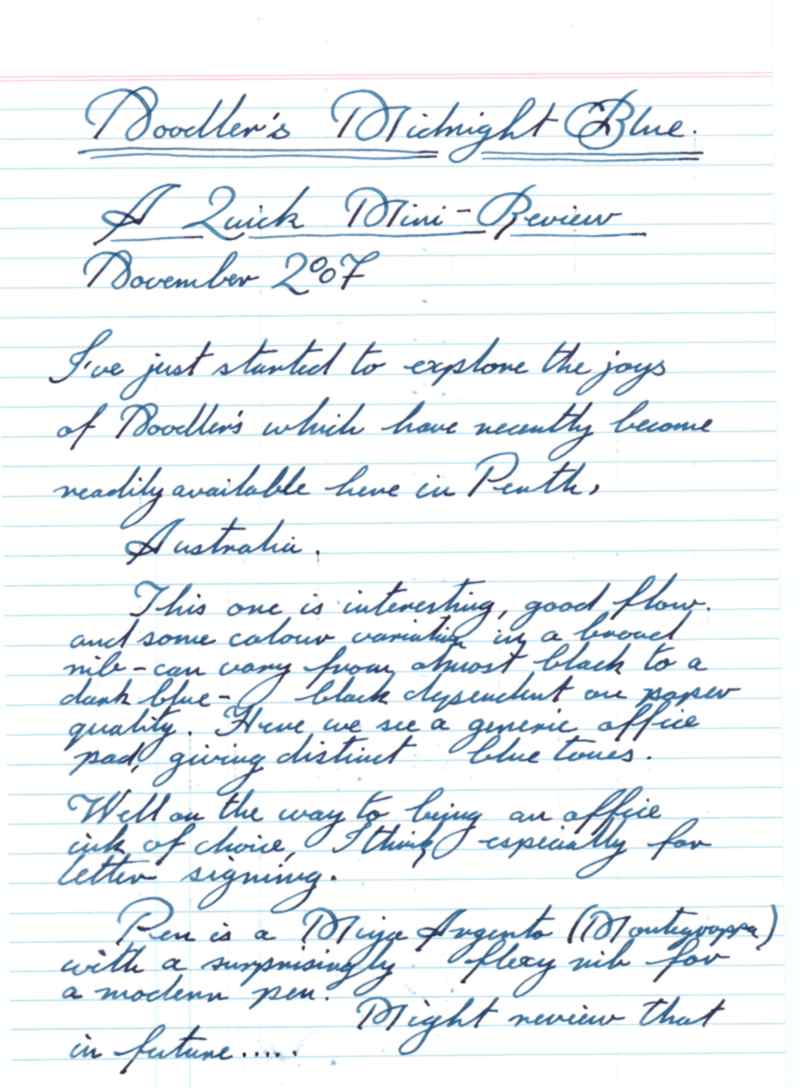 Noodler's Midnight Blue.
A Quick Mini-Review
November 2007
I've just started to explore the joys
of Noodler's which have recently become
readily available here in Perth,
Australia.
This one is interesting, good flow.
and some colour variation in a broad
nib - can vary from almost black to a
dark blue- black dependent on paper
quality. Here we see a generic office
pad, giving distinct blue tones.
Well on the way to being an office
ink of choice, I think, especially for
letter signing.
Pen is a Miya Argento (Montegrappa)
with a surprisingly flexy nib for
a modern pen.
Might review that
in future.....